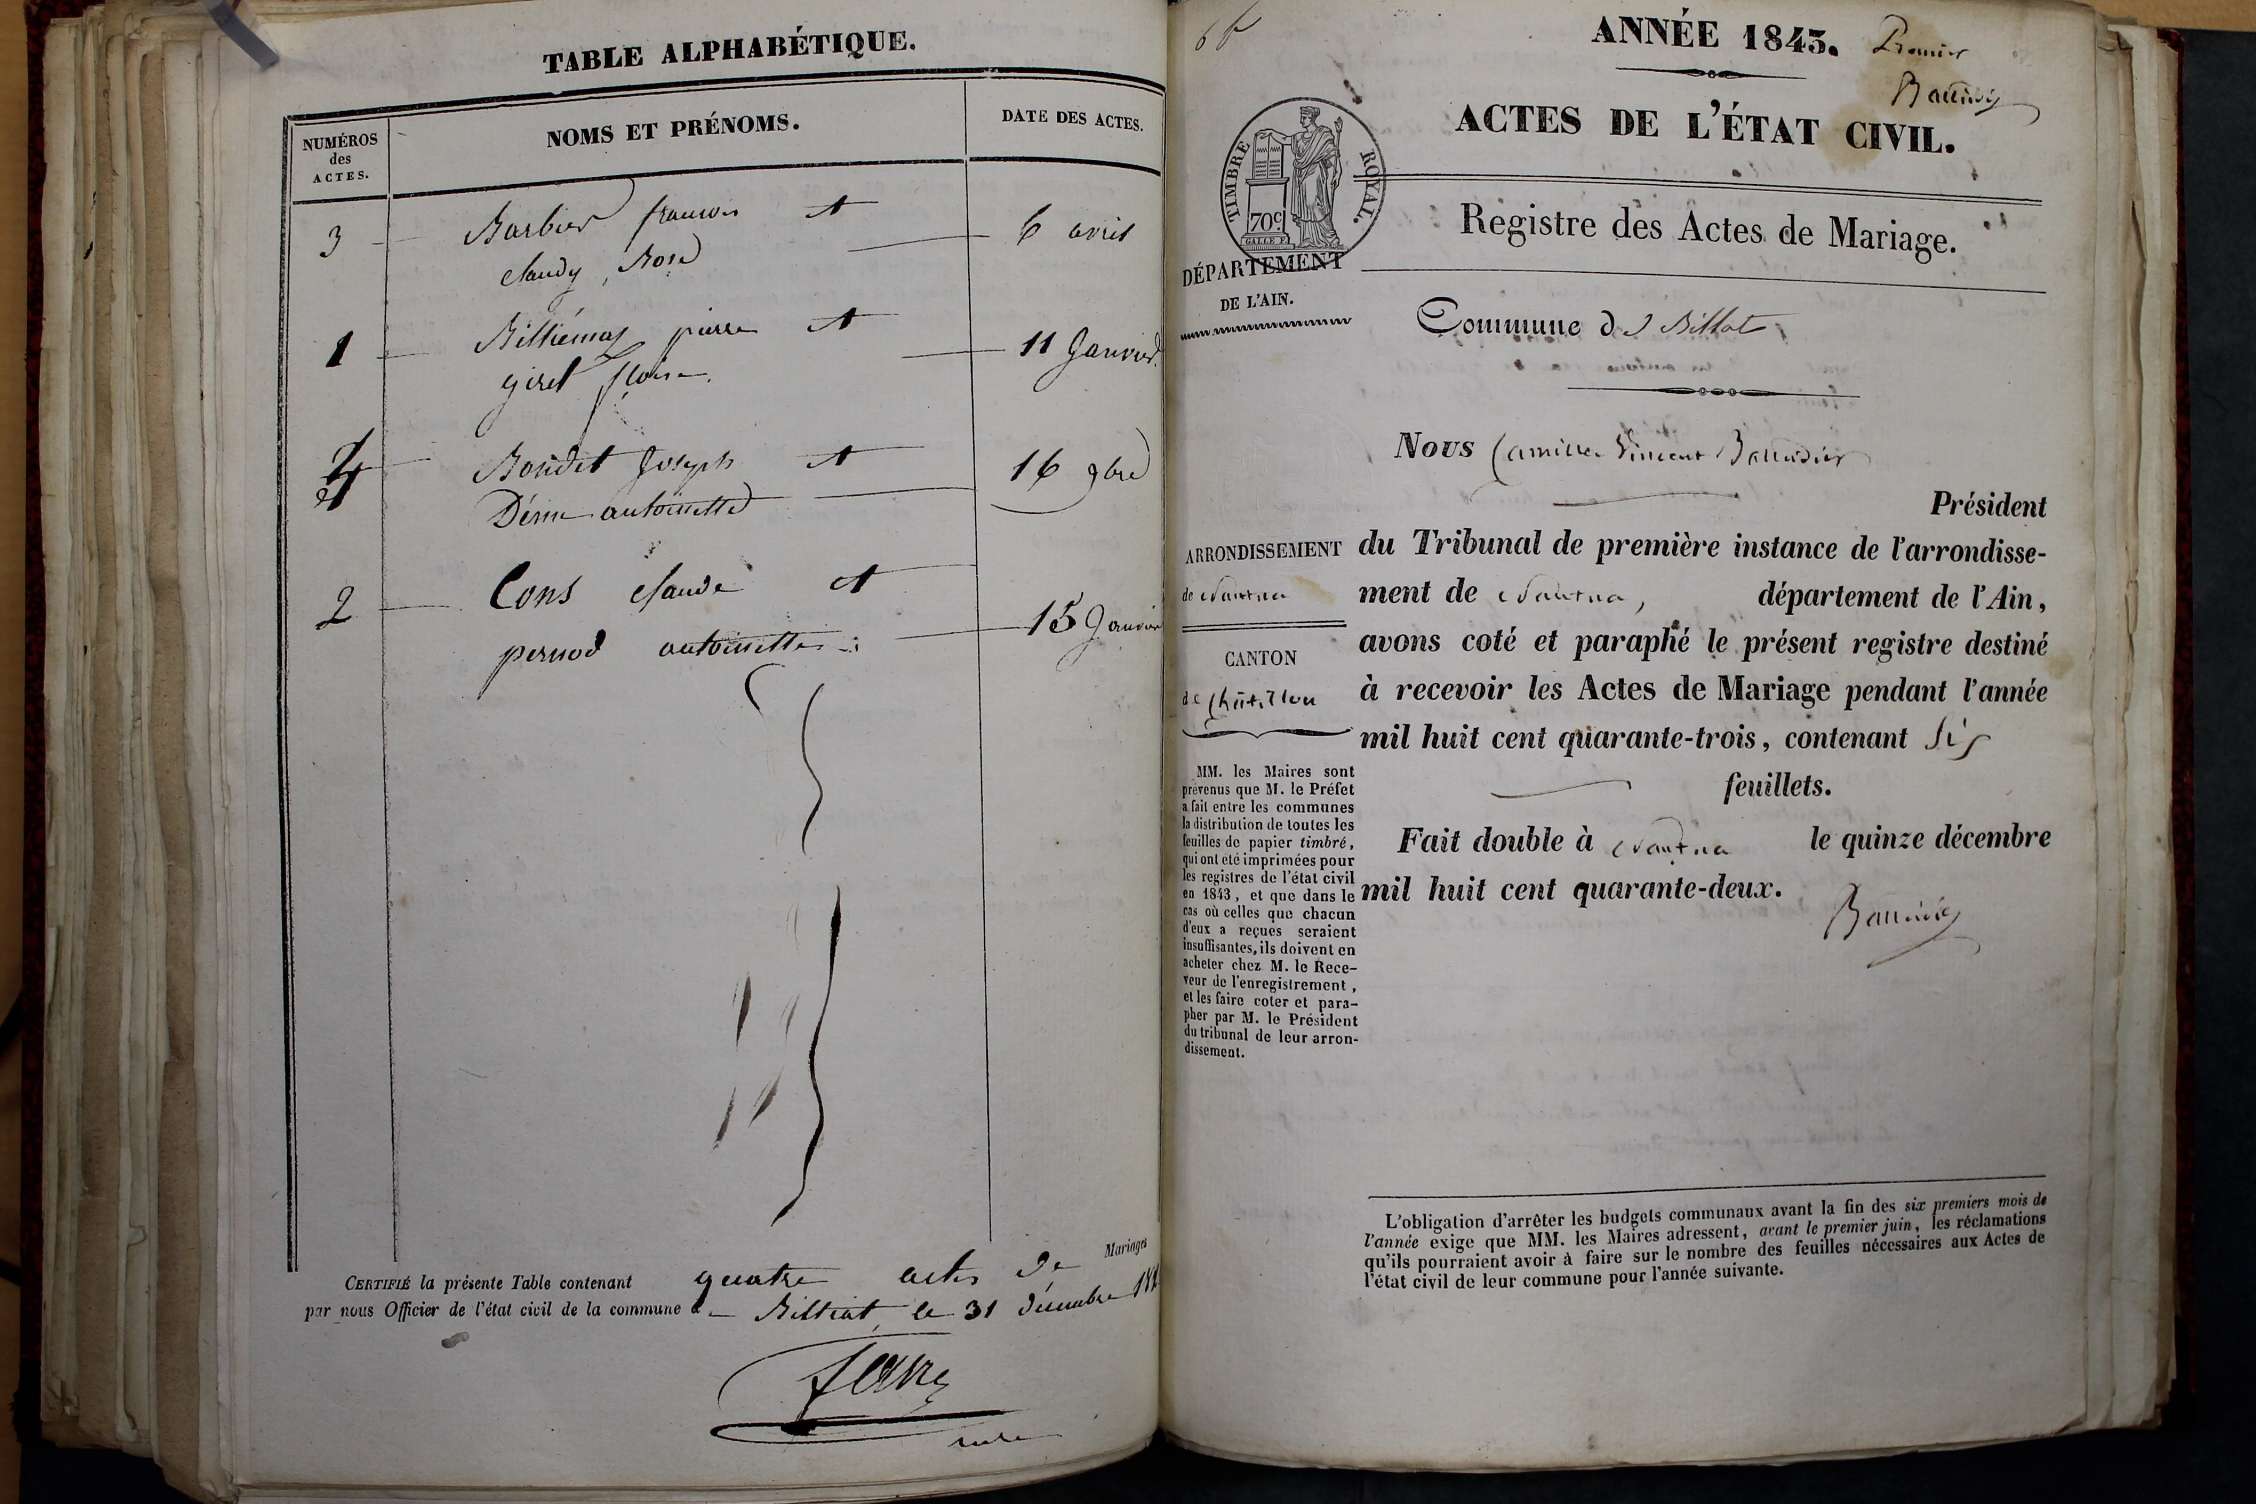 TABLE ALPHABÉTIQUE.
NUMÉROS
des
ACTES.
NOMS ET PRÉNOMS.
DATE DES ACTES.
3 Barbier françois et 6 avril
claudy Rose
1 Billiémaz pierre et 11 Janvier
giret
4 Bondet Joseph et 16 9bre
antoinette
2 Cons claude et 15 Janvier
pernod antoinette
Mariages
CERTIFIÉ la présente Table contenant quatre actes de
par nous Officier de l'état civil de la commune de Billiat, le 31 décembre
6 f
ANNÉE 1843. Premier
Baudier
TIMBRE ROYAL.
70c
GALLE F.
ACTES DE L'ÉTAT CIVIL.
Registre des Actes de Mariage.
DÉPARTEMENT
DE L'AIN.
Commune de Billiat
Nous Camille Vincent
Président
ARRONDISSEMENT
de Nantua
CANTON
de Châtillon
du Tribunal de première instance de l'arrondisse-
ment de Nantua, département de l'Ain,
avons coté et paraphé le présent registre destiné
à recevoir les Actes de Mariage pendant l'année
mil huit cent quarante-trois, contenant six
feuillets.
Fait double à Nantua le quinze décembre
mil huit cent quarante-deux.
MM. les Maires sont
prévenus que M. le Préfet
a fait entre les communes
la distribution de toutes les
feuilles de papier timbré,
qui ont été imprimées pour
les registres de l'état civil
en 1843, et que dans le
cas où celles que chacun
d'eux a reçues seraient
insuffisantes, ils doivent en
acheter chez M. le Rece-
veur de l'enregistrement,
et les faire coter et para-
pher par M. le Président
du tribunal de leur arron-
dissement.
L'obligation d'arrêter les budgets communaux avant la fin des six premiers mois de
l'année exige que MM. les Maires adressent, avant le premier juin, les réclamations
qu'ils pourraient avoir à faire sur le nombre des feuilles nécessaires aux Actes de
l'état civil de leur commune pour l'année suivante.